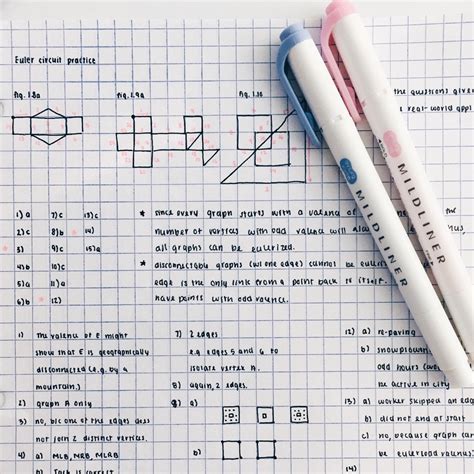 Euler circuit practice
fig. 1.8a
fig. 1.9a
fig. 1.10
the questions given
real-world appl
1) a 7) c 13) c
2) c 8) b 14)
3) 9) c 15) a
4) b 10) c
5) a 11) c
6) b 12)
* since every graph starts with a valence of
number of vertices with odd valence will also
all graphs can be eulerized.
* disconnectable graphs (w/ one edge) cannot be euler
edge is the only link from a point back to itself.
have points with odd valence.
1) the valence of E might
show that E is geographically
disconnected (e.g. by a
mountain.)
2) graph A only
3) no, b/c one of the edges does
not join 2 distinct vertices.
4) a) MLB, NRB, MLAB
7) 2 edges
e.g. edges 5 and 6 to
isolate vertex A.
8) again, 2 edges.
9) a)
12) a) re-paving
b) snowplowin
odd hours (we
be active in city
13) a) worker skipped an edg
b) did not end at start
c) no, because graph can
be eulerized valence
MILDLINER
MILDLINER